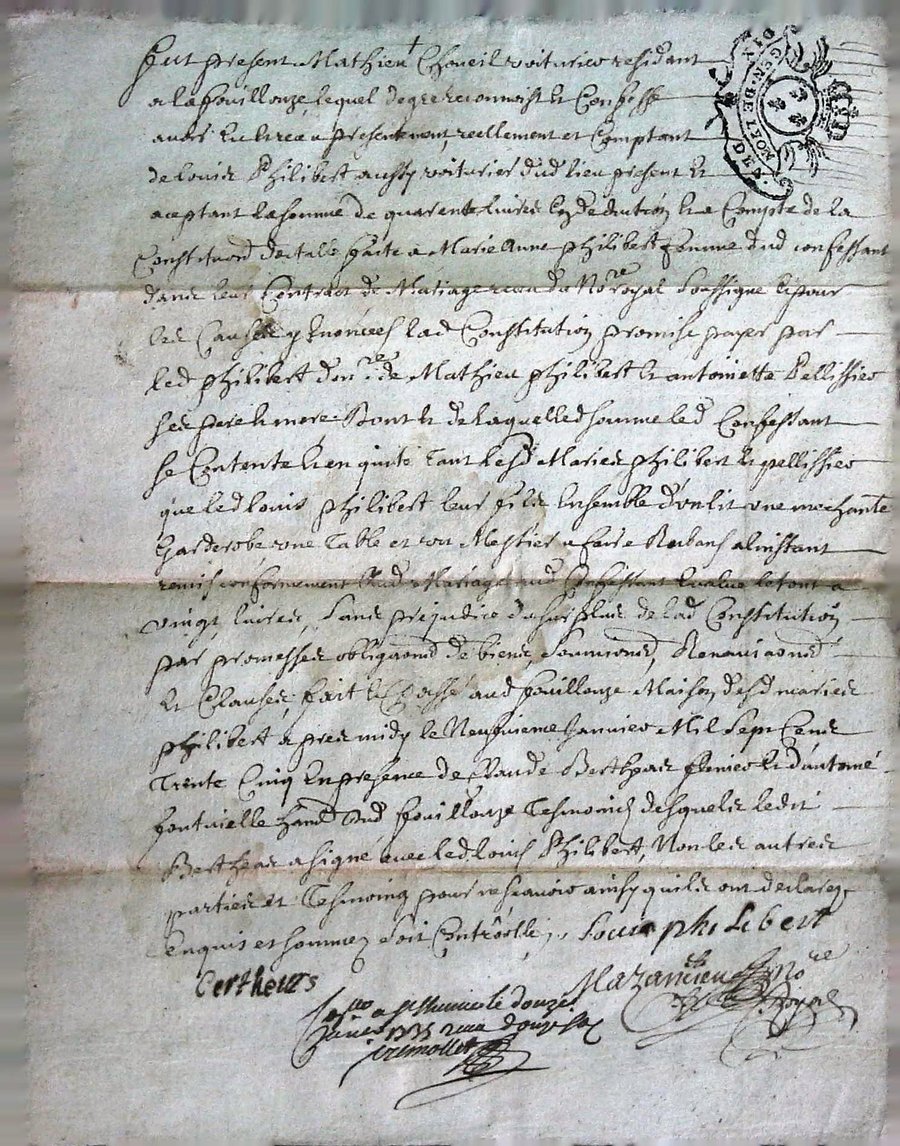 fut present Mathieu Choveil voiturier residant
a la fouillouze, lequel de gre reconnoist et Confesse
avoir eu presentement, reellement et Comptant
de Louis Philibert aussy voiturier dud lieu present et
aceptant la somme de quarente livres en dedution et a Compte de la
Constituond dotalle faite a Marie Anne philibert femme dud confessant
dans leur Contract de Mariage recu du Nore royal soussigne et pour
les Causes y Enoncees lad Constitution promise payer par
led philibert de Mathieu philibert et antoinette Pellissier
ses pere et mere. Dont et de laquelle somme led Confessant
se Contente et en quite tant lesd Maries philibert et pellissier
que led Louis philibert leur fils Ensemble d'un lit une mechante
Garderobe une Table et un Mestier a faire Rubans a linstant
remis conformement aud Mariage aud Confessant Evalue le tout a
vingt livres, sans prejudice du surplus de lad Constitution
par promesses obligaond de biens soumiond, Renonciaond
et Clauses, fait et Passé aud fouillouze Maison desd maries
philibert apres midy le Neufvieme Janvier Mil Sept Cens
Trente Cinq En presence de Claude Bertheas et d'antoine
fontvielle dud fouillouze Tesmoins desquels ledit
Bertheas a signe avec led Louis Philibert, Non les autres
parties et Tesmoing pour ne scavoir ainsy quils ont declare
enquis et sommez soit Controllé
Louis philibert
Bertheas
Mazancieu Nore Royal
a st le douze
janvier 1735 recu douze s
GEN. DE
DIX DEN